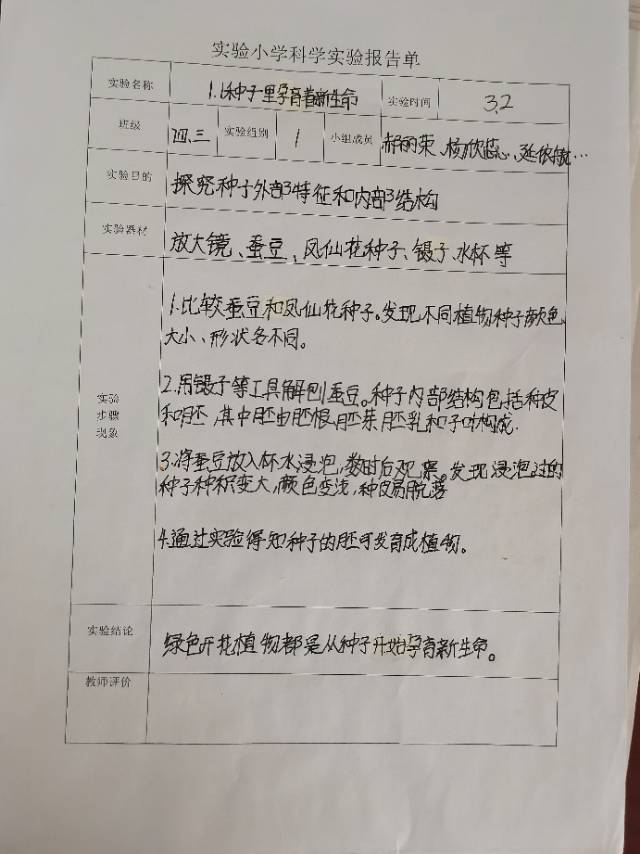 实验小学科学实验报告单
实验名称 1.1种子里孕育着新生命 实验时间 3.2
班级 四.三 实验组别 1 小组成员 郝丽荣、杨欣蕊心、延依敏…
实验目的 探究种子外部特征和内部结构
实验器材 放大镜、蚕豆、凤仙花种子、镊子、水杯等
1.比较蚕豆和凤仙花种子。发现不同植物种子颜色
大小、形状各不同。
2.用镊子等工具解刨蚕豆。种子内部结构包括种皮
实验
和胚,其中胚由胚根、胚芽、胚乳和子叶构成.
步骤
现象
3.将蚕豆放入杯水浸泡,数时后观察。发现浸泡过的
种子种积变大,颜色变浅,种皮易脱落
4.通过实验得知种子的胚可发育成植物。
实验结论 绿色开花植物都是从种子开始孕育新生命。
教师评价